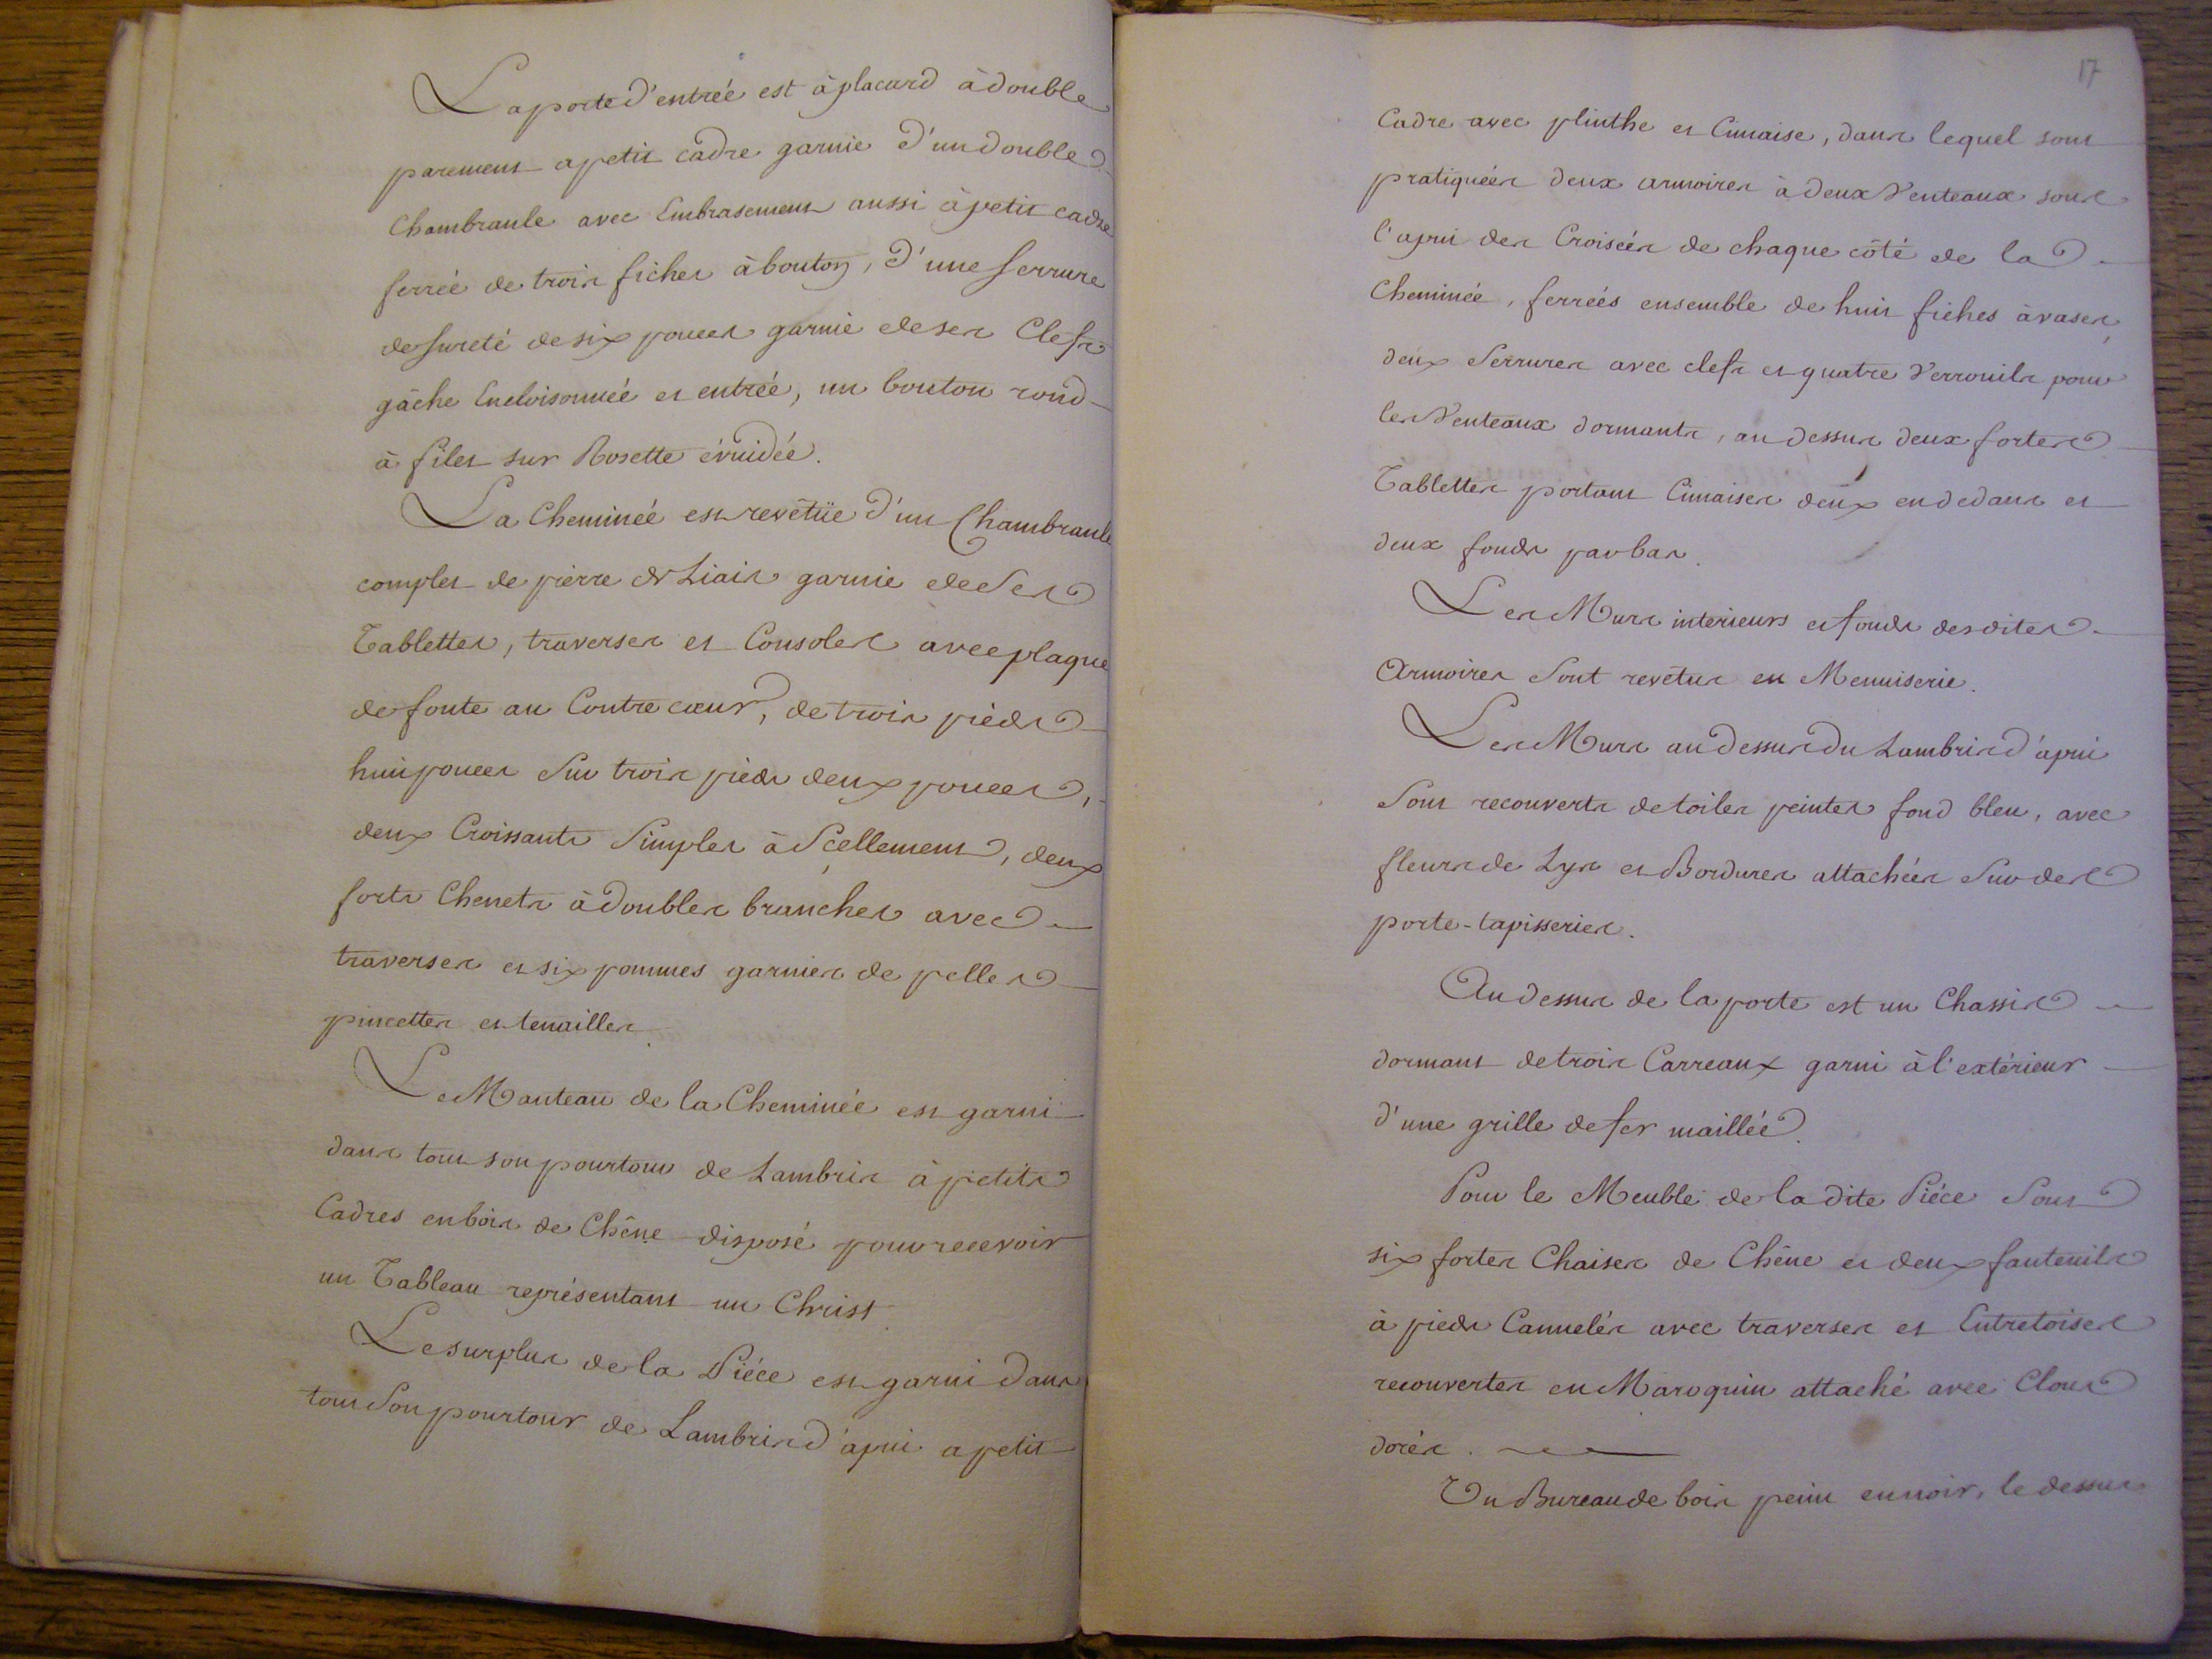 La porte d'entrée est à placard à double
parement a petit cadre garnie d'un double
Chambranle avec Embrasement aussi à petit cadre
ferrée de trois fiches à bouton, d'une serrure
de sureté de six pouces garnie de ses Clefs
gâche Encloisonnée et entrée, un bouton rond
à filet sur Rosette évuidée.
La Cheminée est revêtüe d'un Chambranle
complet de pierre de Liais garnie de Ses
Tablettes, traverses et Consoles avec plaque
de fonte au Contre cœur, de trois pieds
huit pouces Sur trois pieds deux pouces,
deux Croissants Simples à Scellement, deux
forts Chenets à doubles branches avec
traverses et six pommes garnies de pelles
pincettes et tenailles.
Le Manteau de la Cheminée est garni
dans tout son pourtour de Lambris à petits
Cadres en bois de Chêne disposé pour recevoir
un Tableau représentant un Christ.
Le surplus de la Piéce est garni dans
tout Son pourtour de Lambris d'apui a petit
17
Cadre avec plinthe et Cimaise, dans lequel sont
pratiquées deux armoires à deux Venteaux sous
l'apui des Croisées de chaque côté de la
Cheminée, ferrées ensemble de huit fiches à vases,
deux Serrures avec clefs et quatre Verrouils pour
les Venteaux dormants, au dessus deux fortes
Tablettes portant Cimaises deux en dedans et
deux fonds par bas.
Les Murs intérieurs et fonds desdites
Armoires Sont revêtus en Menuiserie.
Les Murs au dessus du Lambris d'apui
Sont recouverts de toiles peintes fond bleu, avec
fleurs de Lys et Bordures attachées Sur des
porte-tapisseries.
Au dessus de la porte est un Chassis
dormant de trois Carreaux garni à l'extérieur
d'une grille de fer maillée.
Pour le Meuble de la dite Piéce Sont
six fortes Chaises de Chêne et deux fauteuils
à pieds Cannelés avec traverses et Entretoises
recouvertes en Maroquin attaché avec Clous
dorés.
Un Bureau de bois peint en noir, le dessus